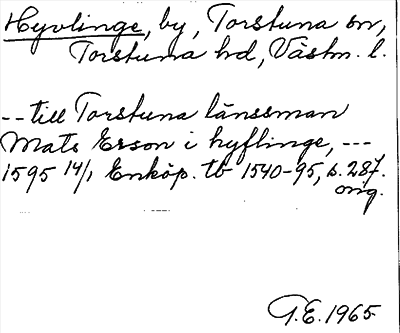 Hyvlinge, by, Torstuna sn,
Torstuna hd, Västm. l.
-- till Torstuna länssman
Mats Erson i hyflinge, ---
1595 14/1 Enköp. tb 1540-95, s. 287.
orig.
T.E. 1965